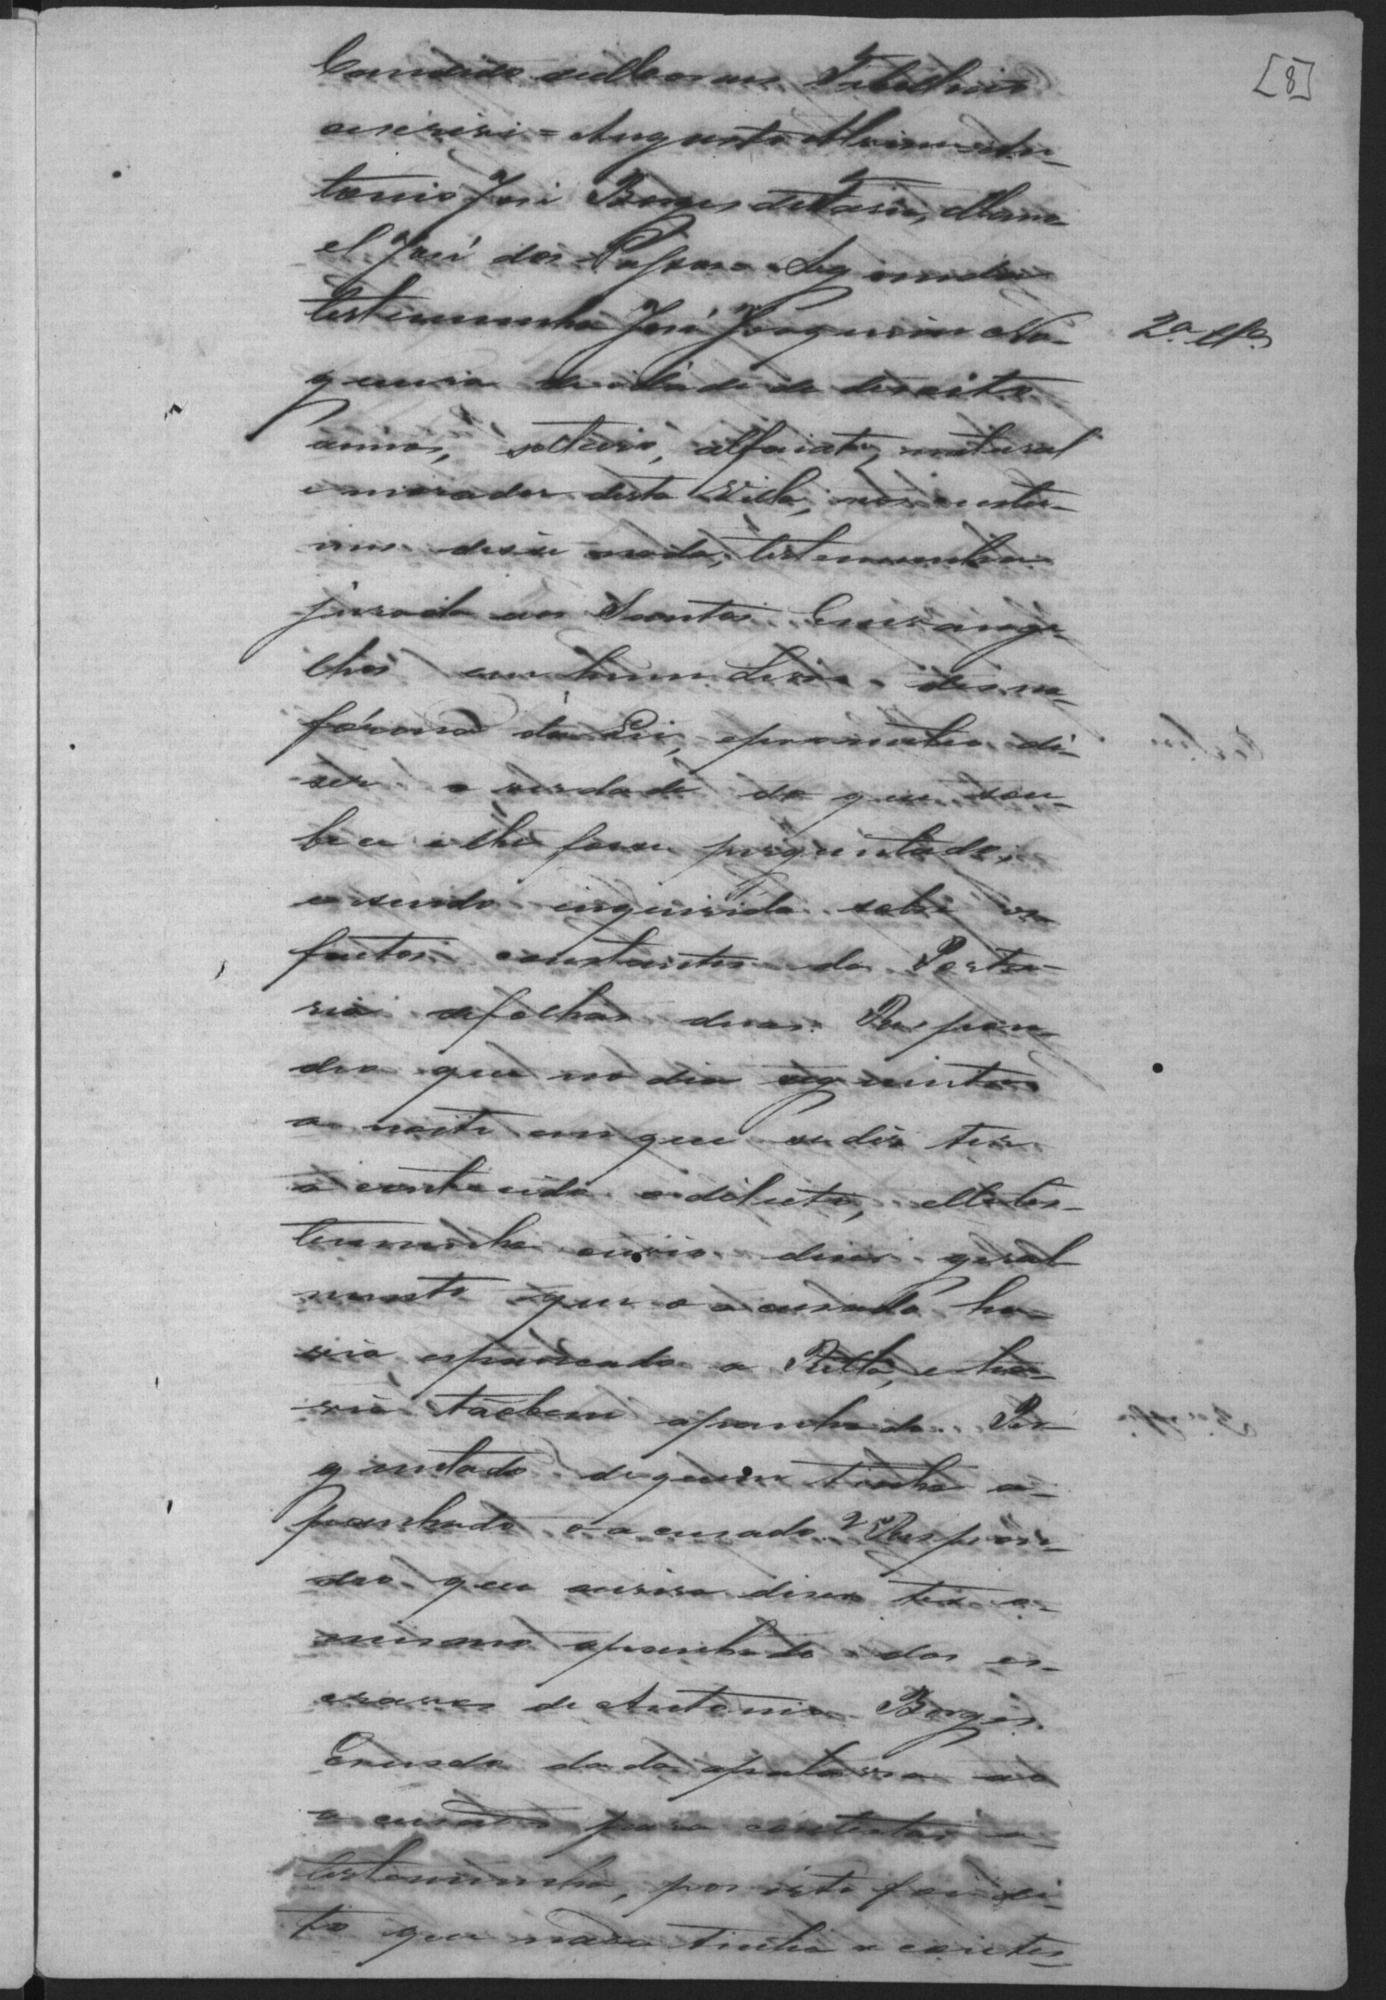 [8]
Candido de Moraes Tabelliaõ
escrivi = Augusto An-
tonio José Borges de Faria, Mano
el José dos Passos. Segunda
testemunha José Joaquim No-
2ª
gueira de idade de desoito
annos, solteiro, alfaiate, natural
e morador desta Villa, aos custu-
mes disse nada, testemunha
jurada aos Santos Evange-
lhos em hum Livro delles na
fórma da Lei, eprometteo di-
zer a verdade do que sou-
besse e lhe fosse perguntado,
e sendo inquirida sobre os
factos constantes da Porta-
ria afolhas duas. Respon-
deo que no dia seguinte
a noite em que se diz ter
acontecido o delicto, elle tes-
temunha ouvio dizer geral
mente que o accusado ha-
via espancado a Ritta, e ha-
via tãobem apanhado. Per-
guntado dequem tinha a-
panhado o accusado? Respon-
deo que ouvira dizer ter o
mesmo apanhado dos es-
cravos de Antonio Borges.
Esendo dada apalavra ao
accusado para contestar a
testemunha, por este foi di-
to que nada tinha a contes-